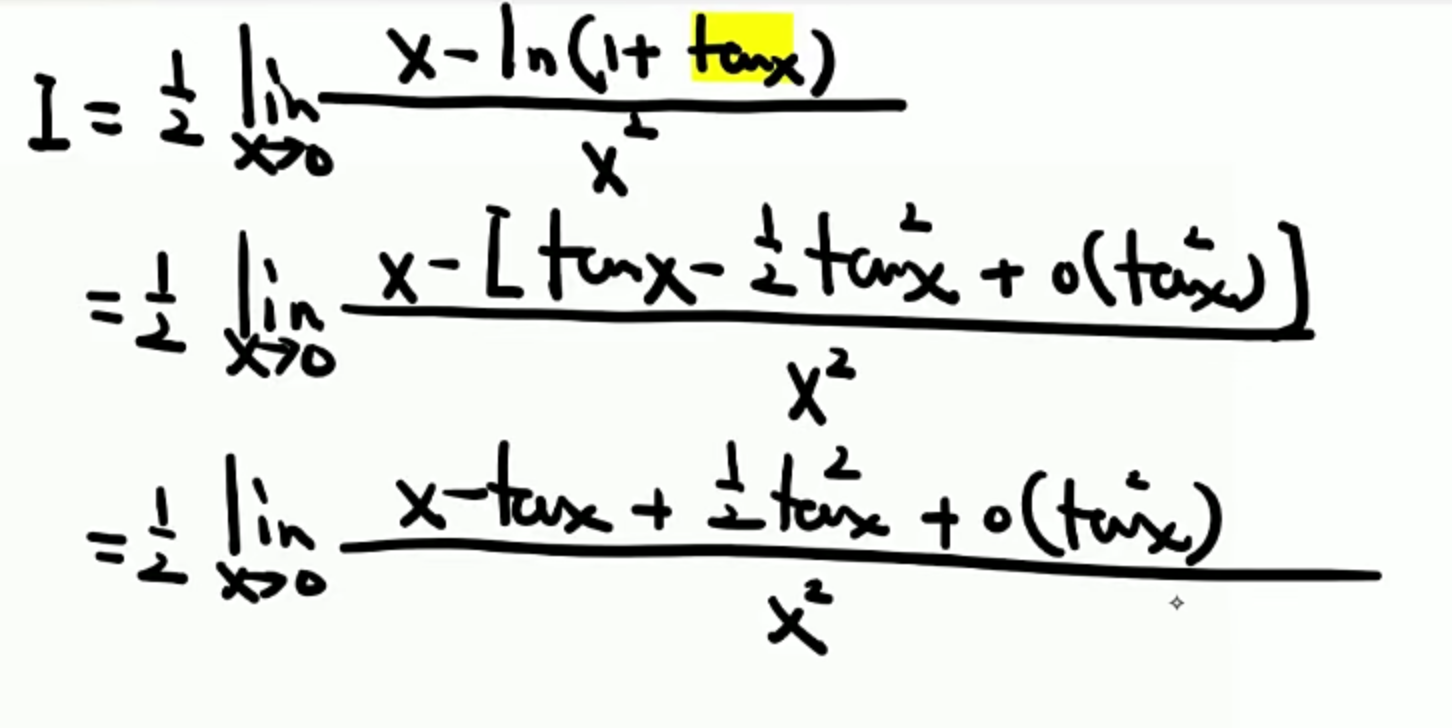 I = 1/2 lim x→0 (x - ln(1 + tanx)) / x²
= 1/2 lim x→0 (x - [tanx - 1/2 tan²x + o(tan²x)]) / x²
= 1/2 lim x→0 (x - tanx + 1/2 tan²x + o(tan²x)) / x²